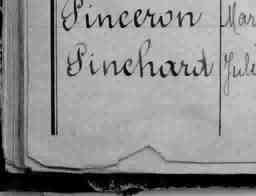 Pinceron Mar
Pinchard Juli